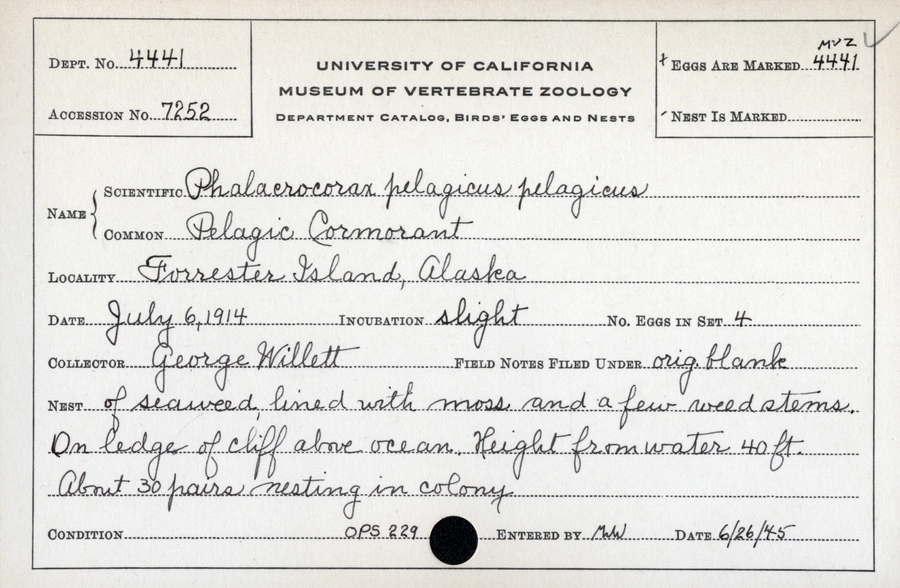 MVZ
Dept. No. 4441
UNIVERSITY OF CALIFORNIA
Eggs Are Marked 4441
MUSEUM OF VERTEBRATE ZOOLOGY
Accession No. 7252
Department Catalog, Birds' Eggs and Nests
Nest Is Marked
Name { Scientific Phalacrocorax pelagicus pelagicus
Common Pelagic Cormorant
Locality Forrester Island, Alaska
Date July 6, 1914 Incubation slight No. Eggs in Set 4
Collector George Willett Field Notes Filed Under orig. blank
Nest of seaweed, lined with moss and a few weed stems.
On ledge of cliff above ocean. Height from water 40 ft.
About 30 pairs nesting in colony
Condition OPS 229 Entered by Date 6/26/45